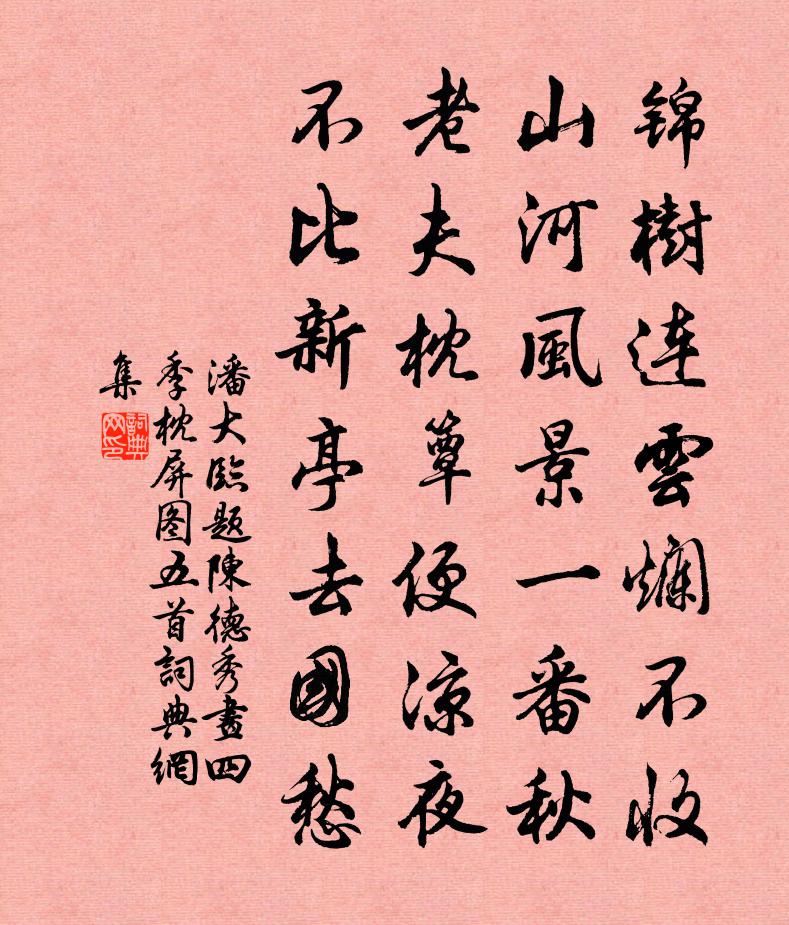 錦樹連雲爛不收
山河風景一番秋
老夫枕簟便涼夜
不比新亭去國愁
潘大臨題陳德秀畫四
季枕屏图五首詞典網
集
詞典
网印